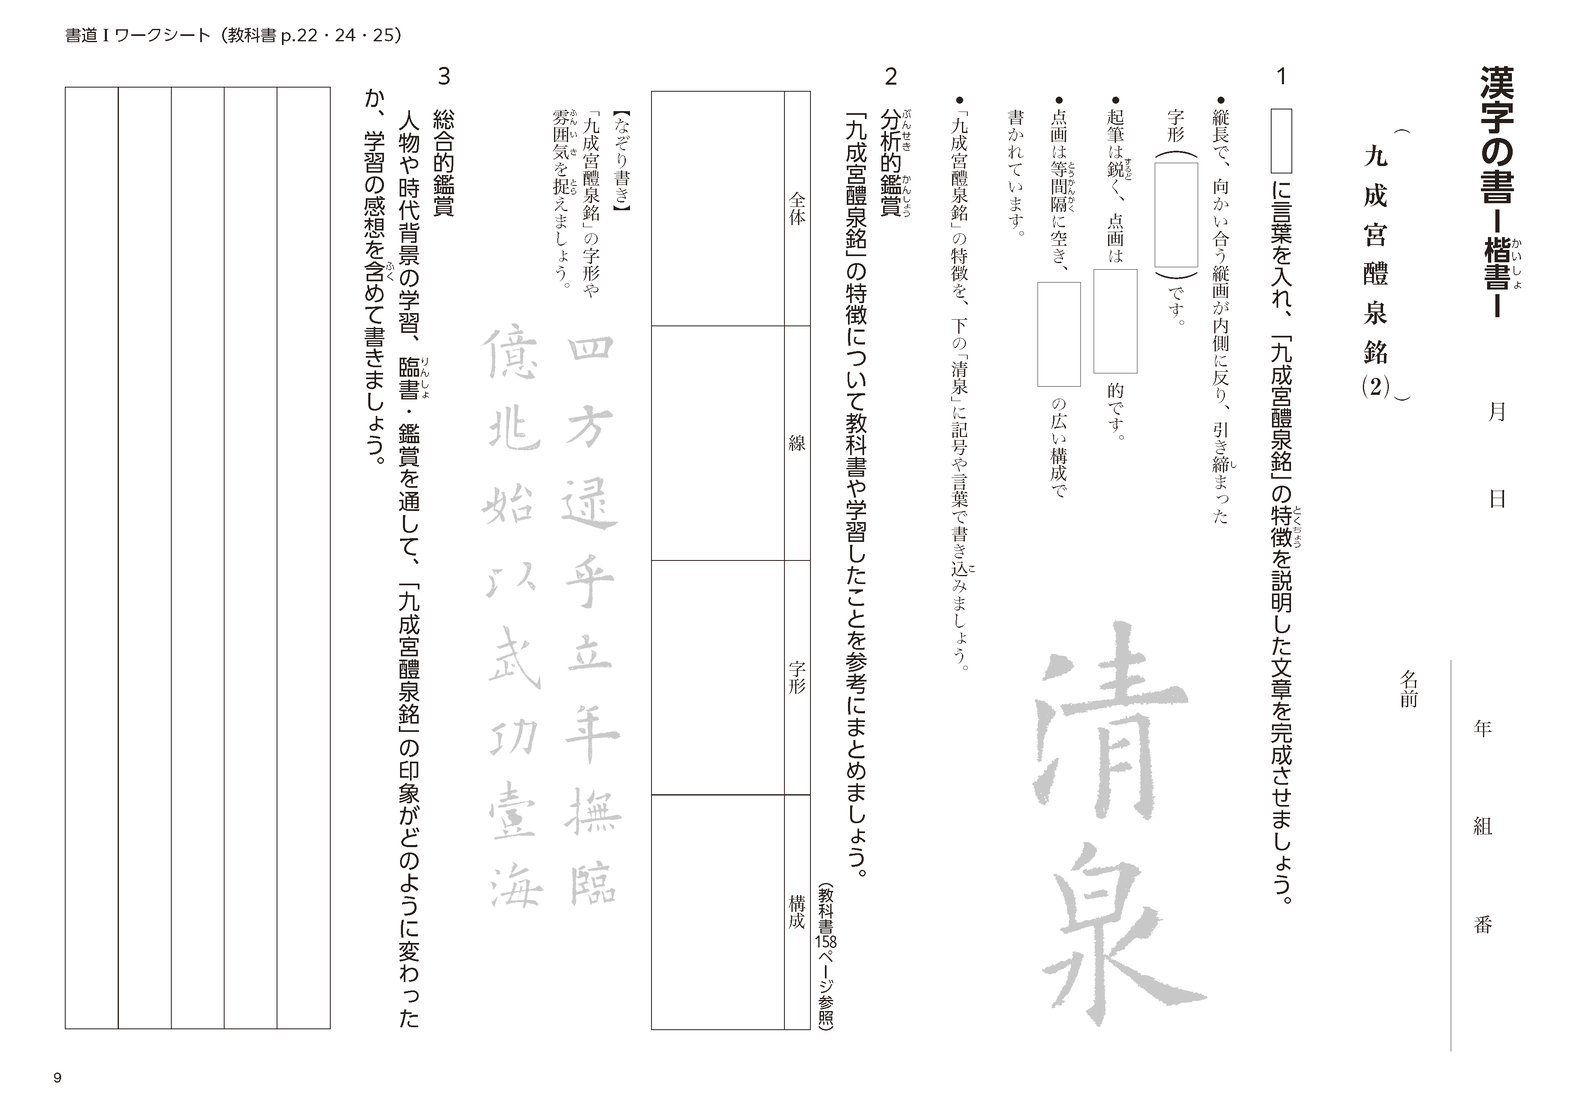 書道Ⅰワークシート（教科書 p.22・24・25）
漢字の書ー楷書ー
かいしょ
月　日
年　組　番
名前
（九成宮醴泉銘(2)）
1
□に言葉を入れ、「九成宮醴泉銘」の特徴を説明した文章を完成させましょう。
とくちょう
●縦長で、向かい合う縦画が内側に反り、引き締まった
し
字形（　）です。
●起筆は鋭く、点画は　的です。
するど
●点画は等間隔に空き、　の広い構成で
とうかんかく
書かれています。
●「九成宮醴泉銘」の特徴を、下の「清泉」に記号や言葉で書き込みましょう。
こ
清泉
2
分析的鑑賞
ぶんせき　かんしょう
「九成宮醴泉銘」の特徴について教科書や学習したことを参考にまとめましょう。
（教科書158ページ参照）
全体
線
字形
構成
【なぞり書き】
「九成宮醴泉銘」の字形や
雰囲気を捉えましょう。
ふんいき　とら
四方逯乎立年撫臨
億兆始以武功壹海
3
総合的鑑賞
人物や時代背景の学習、臨書・鑑賞を通して、「九成宮醴泉銘」の印象がどのように変わった
りんしょ
か、学習の感想を含めて書きましょう。
ふく
9